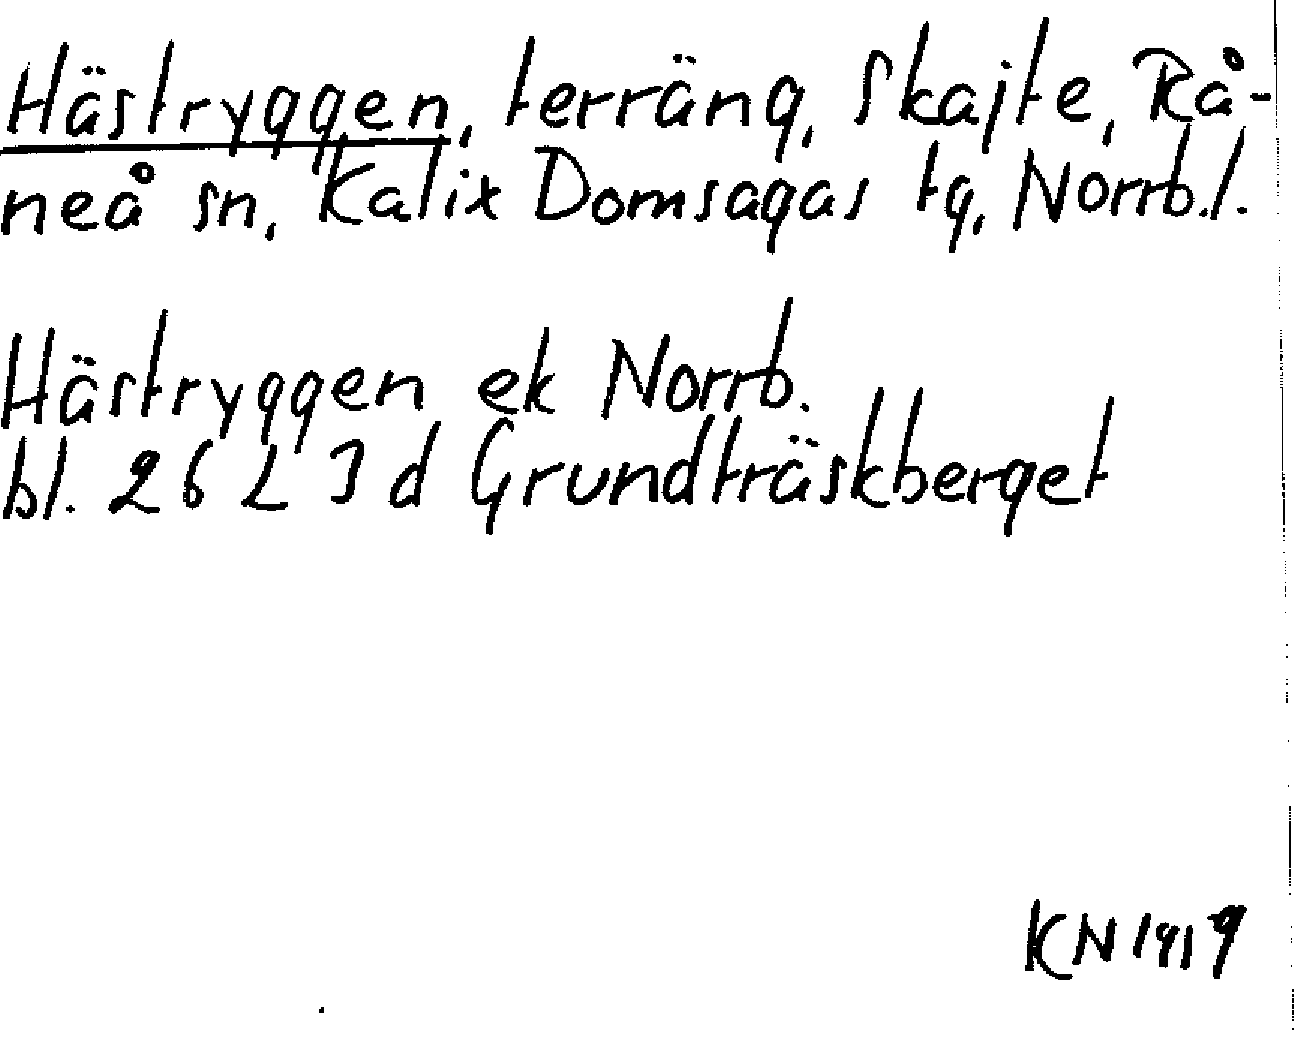 Hästryggen, terräng, Skajte, Rå-
neå sn, Kalix Domsagas tg, Norrb.l.
Hästryggen ek Norrb.
bl. 26 L 3 d Grundträskberget
KN 1919